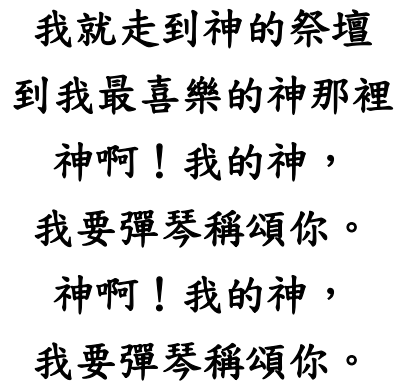 我就走到神的祭壇
到我最喜樂的神那裡
神啊！我的神，
我要彈琴稱頌你。
神啊！我的神，
我要彈琴稱頌你。